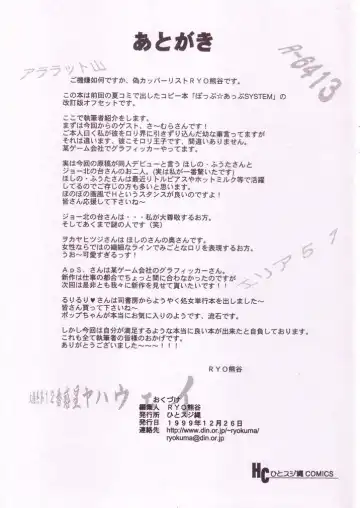 あとがき
アララット山
A-6413
ご機嫌如何ですか、偽カッパーリストＲＹＯ熊谷です。
この本は前回の夏コミで出したコピー本「ぽっぷ☆あっぷSYSTEM」の
改訂版オフセットです。
ここで執筆者の紹介をします。
まずは今回からのゲスト、さ〜むらさんです！
ご本人曰く私が彼をロリ界に引きずり込んだ的な事言ってますが
それは違います、彼こそロリ王子です、間違いありません。
某ゲーム会社でグラフィッカーやってます。
実は今回の原稿が同人デビューと言う ほしの・ふうたさんと
ジョー北の台さんのお二人。(実は私が一番驚いたです)
ほしの・ふうたさんは最近よりトルピアスやホットミルク等で活躍
してるのでご存じの方も多いと思います。
ほのぼの画風でHというスタンスが良いのですよ！
皆さん応援して下さいね〜
ジョー北の台さんは・・・私が大尊敬するお方。
そしてあくまで謎の人です（笑）
ヲカヤヒツジさんは ほしのさんの奥さんです。
女性ならではの繊細なラインでみごとなロリを表現するお方。
うお〜可愛すぎるっす！
ＡｐＳ．さんは某ゲーム会社のグラフィッカーさん。
新作は仕事の都合でちょっと間に合わなかったのですが
次回は是非とも我々に新作を見せて貰いたいです！！
るりるり♥さんは司書房からようやく処女単行本を出しました〜
皆さん買って下さいね〜
ポップちゃんが本当に可愛いのですよ、流石です。
しかし今回は自分が満足するような本当に良い本が出来たと自負しております。
これも全て執筆者の皆様のおかげです。
ありがとうございました〜〜〜！！！
エリア５１
ＲＹＯ熊谷
ヤハウェイ
おくづけ
編集人 ＲＹＯ熊谷
発行所 ひとスジ縄
発行日 １９９９年１２月２６日
連絡先 http://www.din.or.jp/~ryokuma/
ryokuma@din.or.jp
HC ひとスジ縄 COMICS